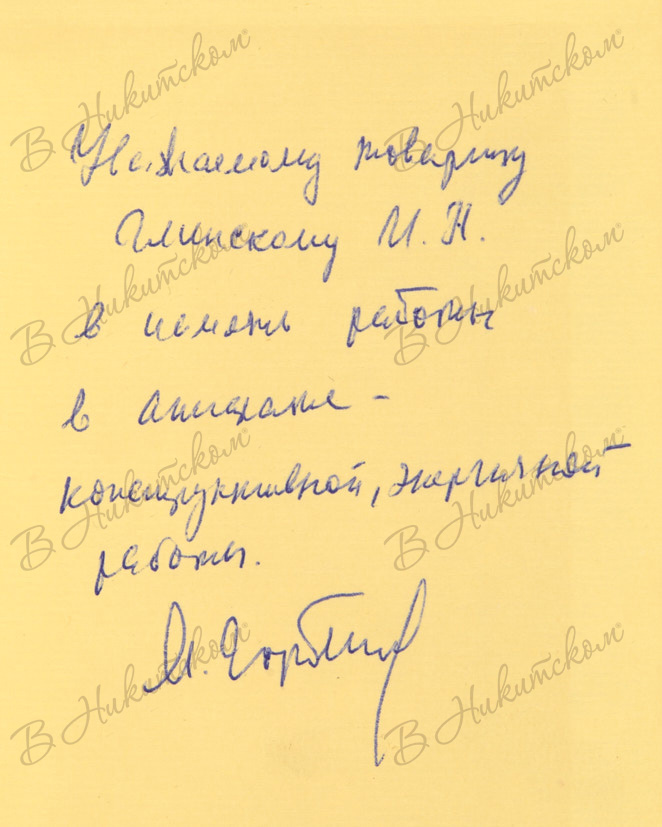 Уважаемому товарищу
Глинскому И. Н.
в память работы
в аппарате –
конструктивной, энергичной
работы.
М. Горбачев
В Никитском®
В Никитском®
В Никитском®
В Никитском®
В Никитском®
В Никитском®
В Никитском®
В Никитском®